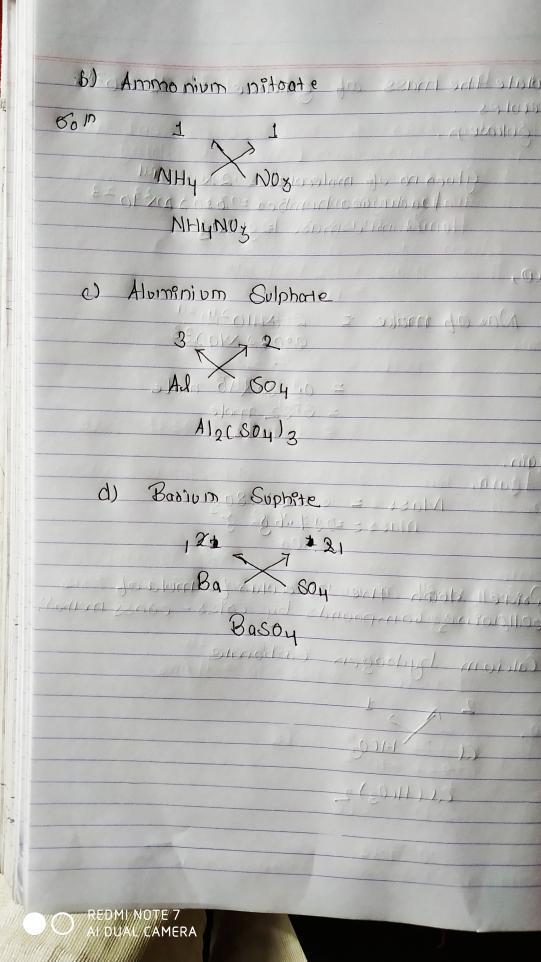 b) Ammonium nitoate
Son
1 1
NH4 NO3
NH4NO3
c) Aluminium Sulphate
3 2
Al SO4
Al2(SO4)3
d) Basium Suphite
Ba SO4
BaSO4
REDMI NOTE 7
AI DUAL CAMERA